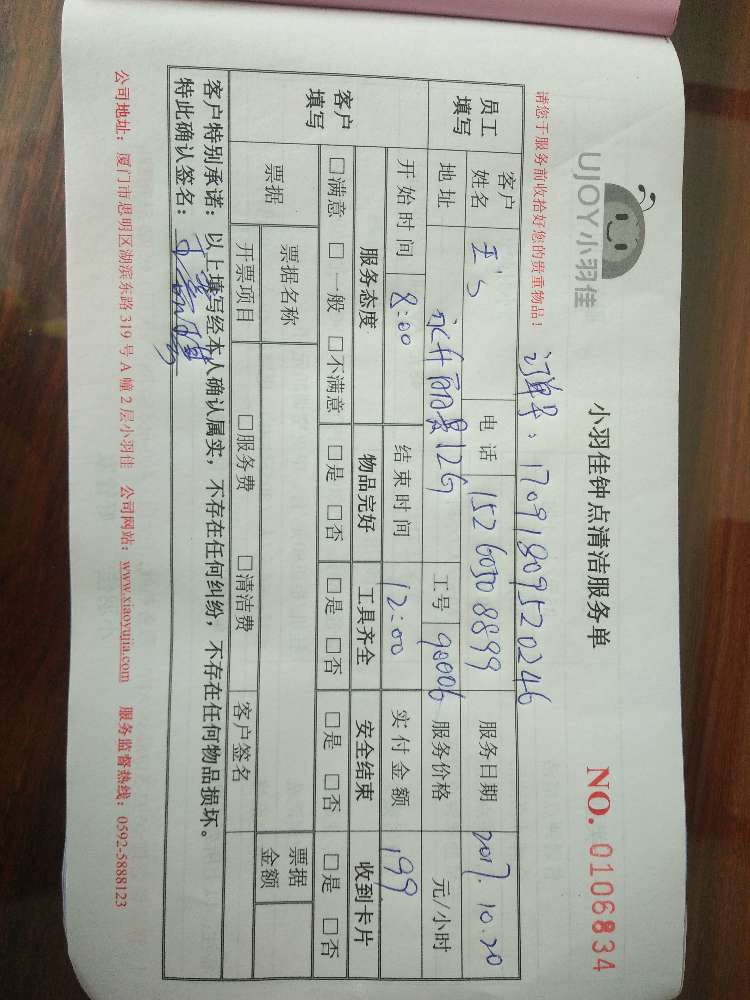 UJOY小羽佳
小羽佳钟点清洁服务单
NO. 0106834
请您于服务前收拾好您的贵重物品！
订单号：17091809520246
员工填写 客户姓名 王's 电话 15260308899 服务日期 2017.10.20
地址 永升丽景12G 工号 90006 服务价格 元/小时
客户填写 开始时间 8:00 结束时间 12:00 实付金额 199
服务态度 物品完好 工具齐全 安全结束 收到卡片
□满意 □一般 □不满意 □是 □否 □是 □否 □是 □否 □是 □否
票据 票据名称 票据金额
开票项目 □服务费 □清洁费 客户签名
客户特别承诺：以上填写经本人确认属实，不存在任何纠纷，不存在任何物品损坏。
特此确认签名：
公司地址：厦门市思明区湖滨东路319号A幢2层小羽佳 公司网站：www.xiaoyujia.com 服务监督热线：0592-5888123